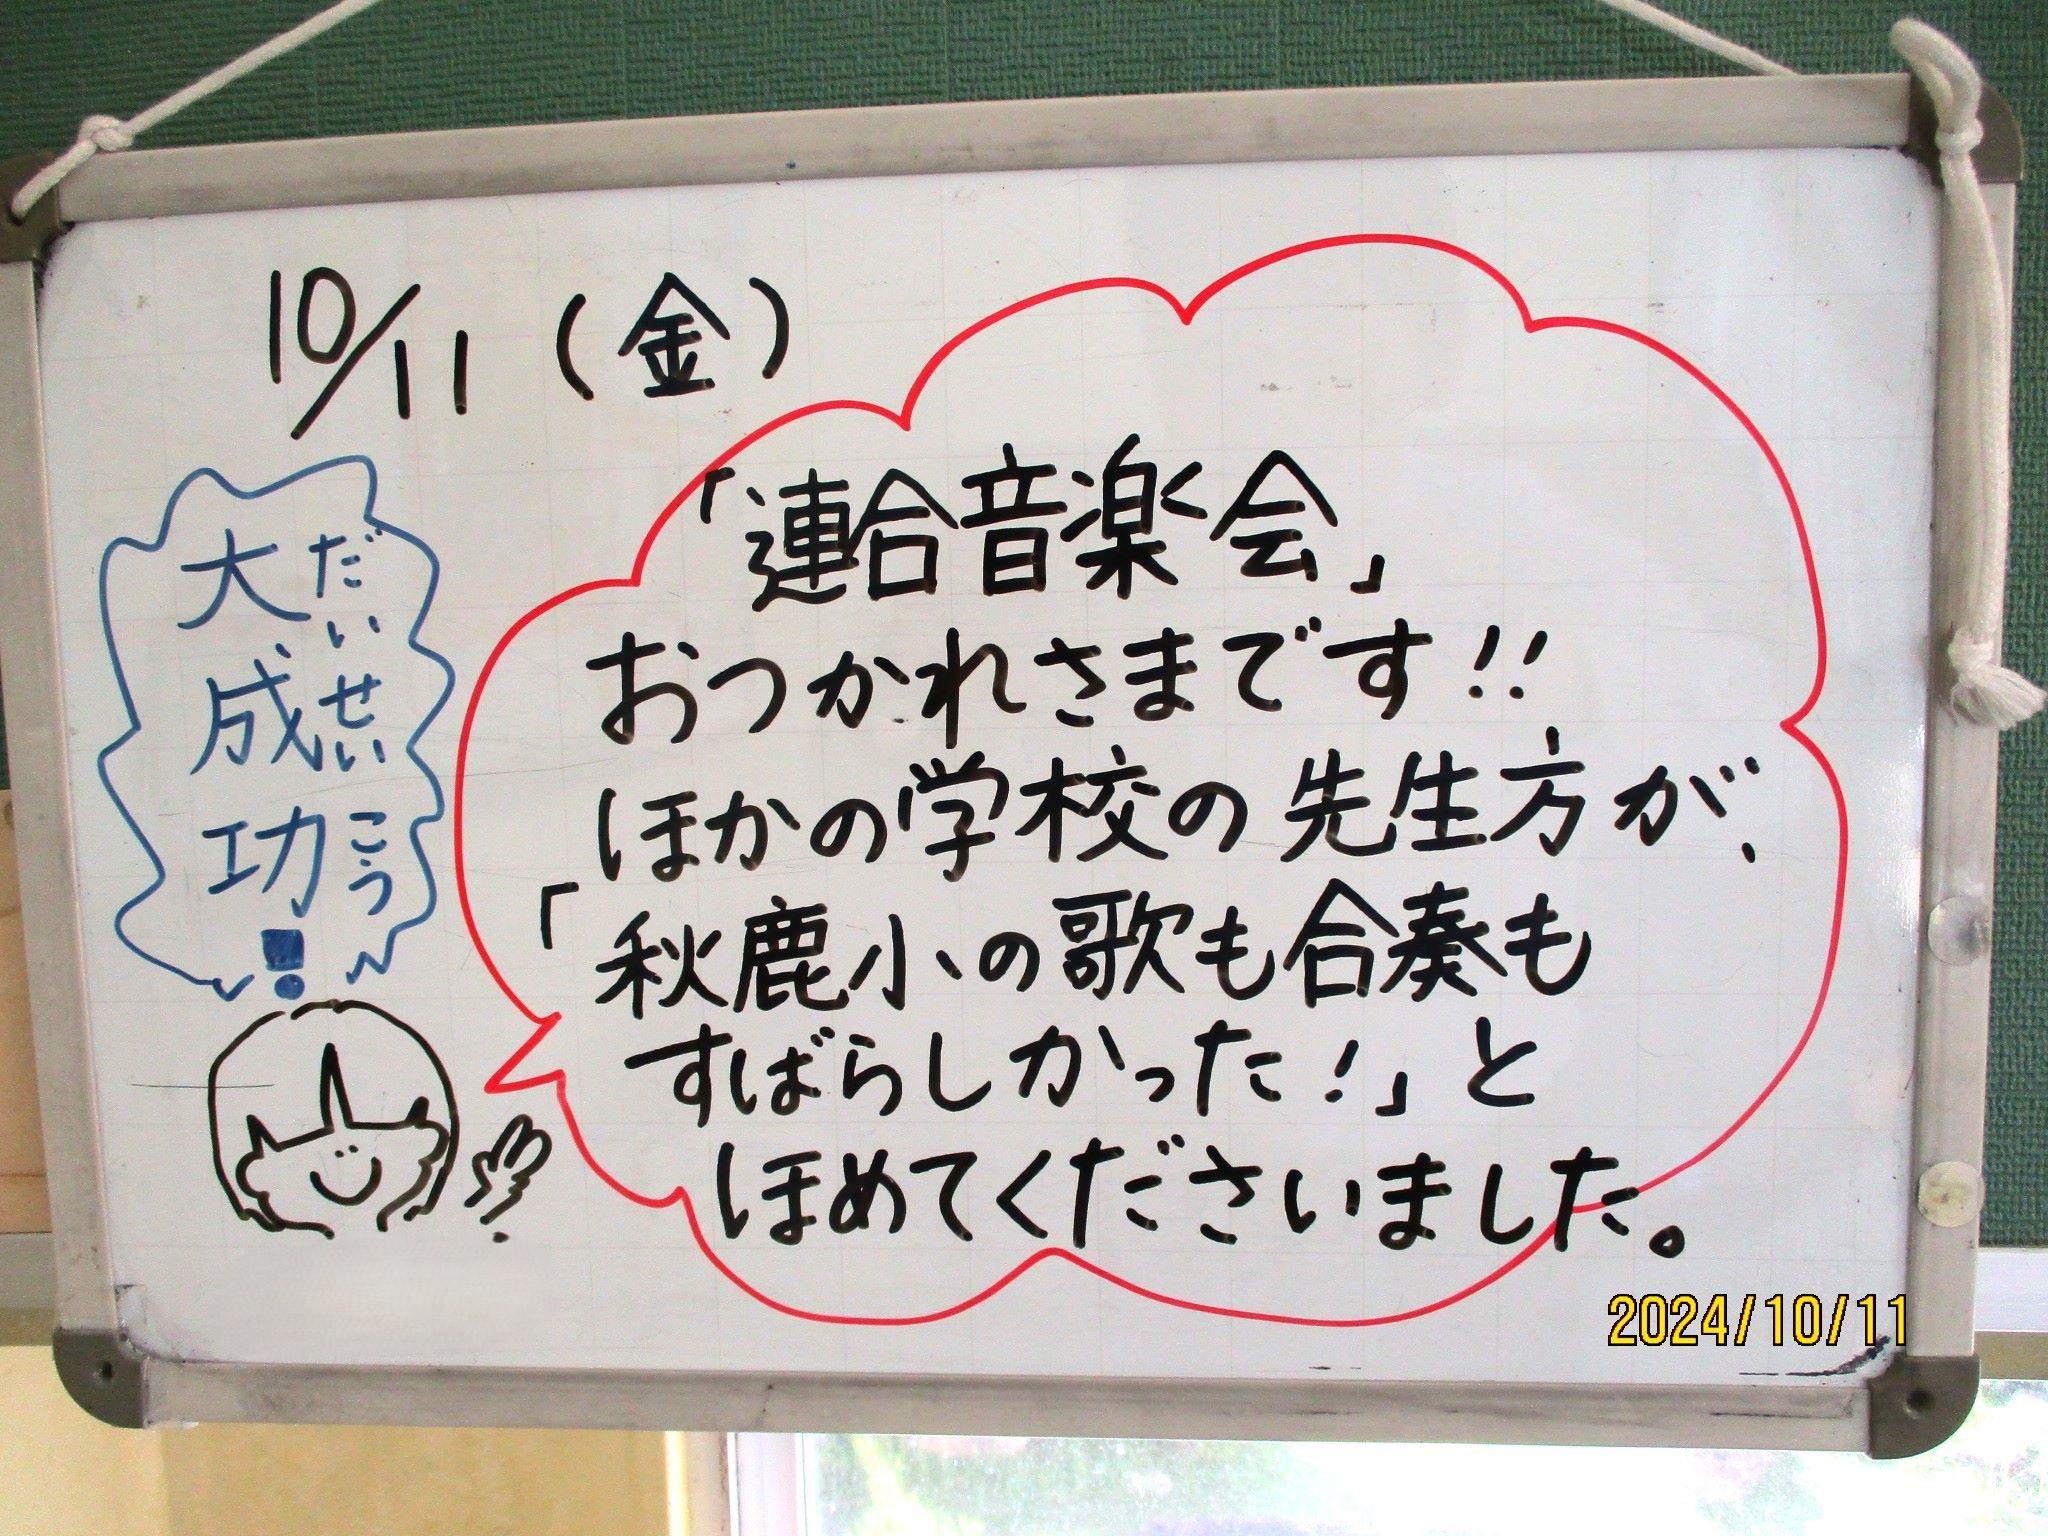 10/11（金）
「連合音楽会」
おつかれさまです!!
ほかの学校の先生方が、
「秋鹿小の歌も合奏も
すばらしかった！」と
ほめてくださいました。
大成功！
だいせいこう
2024/10/11